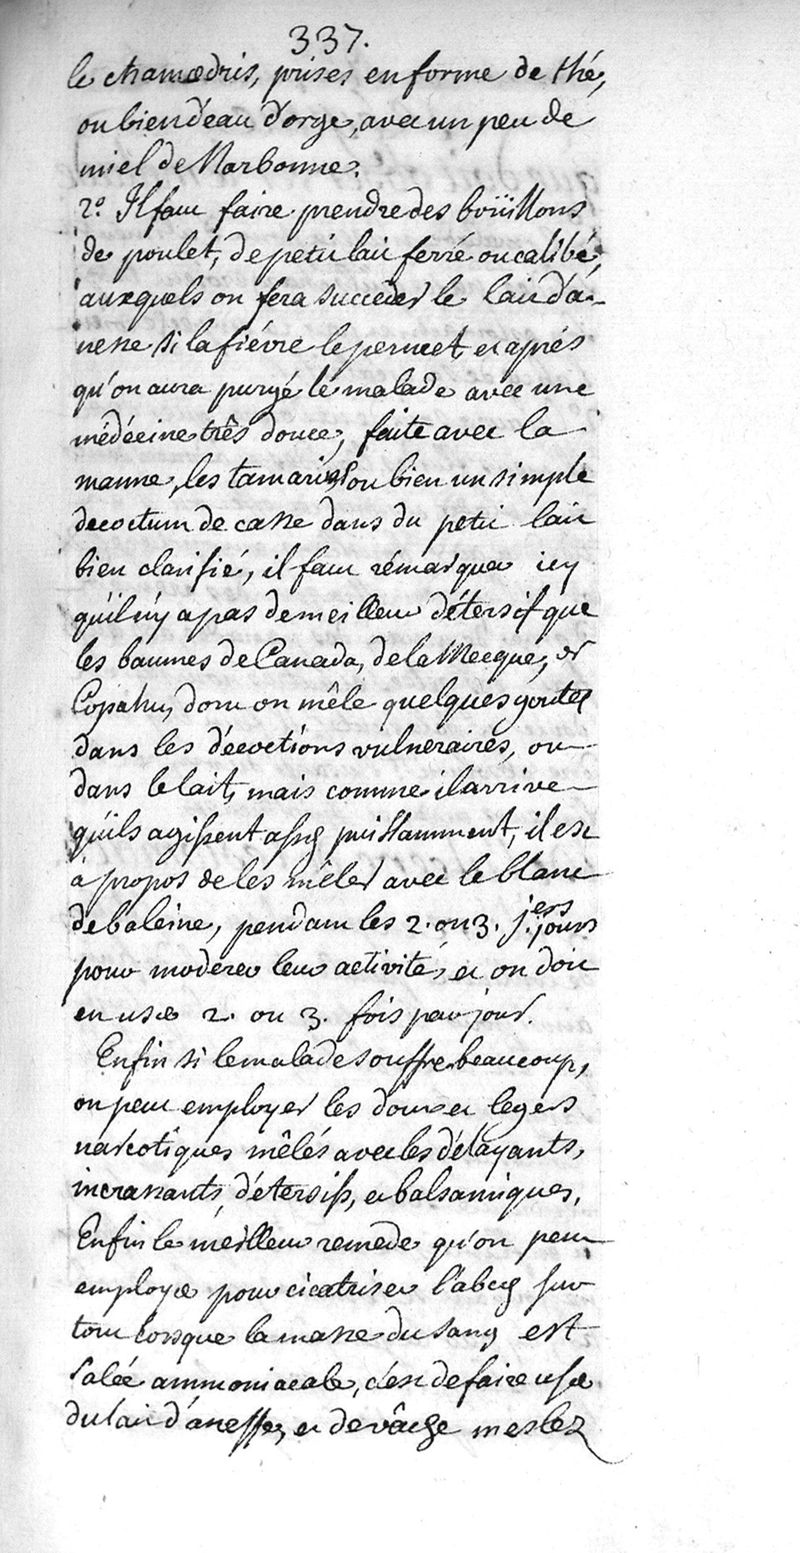 337.
le chamædris, prises en forme de thé,
ou bien d'eau d'orge, avec un peu de
miel de Narbonne.
2.° Il faut faire prendre des boüillons
de poulet, de petit lait ferré ou calibé,
auxquels on fera succeder le lait d'a-
nesse si la fiévre le permet et aprés
qu'on aura purgé le malade avec une
médécine três douce, faite avec la
manne, les tamarins ou bien un simple
decoctum de casse dans du petit lait
bien clarifié, il faut rémarquer icy
qu'il n'y a pas de meilleur détersif que
les baumes de Canada, de la Mecque, et
Copahu, dont on mêle quelques goutes
dans les décoctions vulneraires, ou
dans le lait, mais comme il arrive
qu'ils agissent assez puissamment, il est
à propos de les mêler avec le blanc
de baleine, pendant les 2. ou 3. j.ers jours
pour moderer leur activité, et on doit
en user 2. ou 3. fois par jour.
Enfin si le malade souffre beaucoup,
on peut employer les doux et legers
narcotiques mêlés avec les délayants,
incrassants, détersifs, et balsamiques.
Enfin le meilleur remede qu'on peut
employer pour cicatriser l'abcès sur
tout lorsque la masse du sang est
salée ammoniacale, c'est de faire user
du lait d'anesse, et de vâche meslez